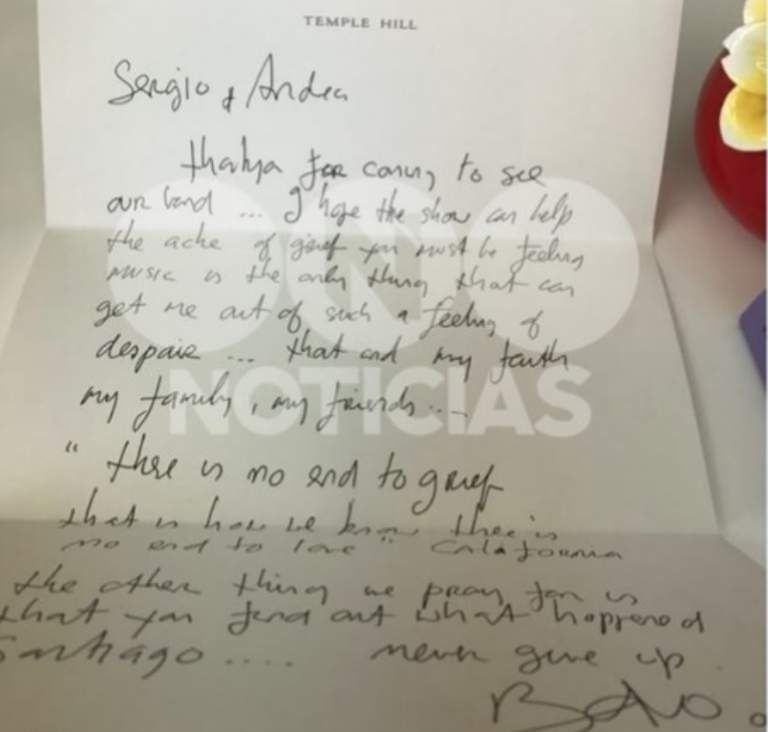 TEMPLE HILL
Sergio & Andrea
thankya for coming to see
our band ... I hope the show can help
the ache of grief you must be feeling
music is the only thing that can
get me out of such a feeling of
despair ... that and my faith
my family, my friends ...
" there is no end to grief
that is how we know there is
no end to love " California
the other thing we pray for is
that you find out what happened
Santiago .... never give up
Bono.
NOTICIAS